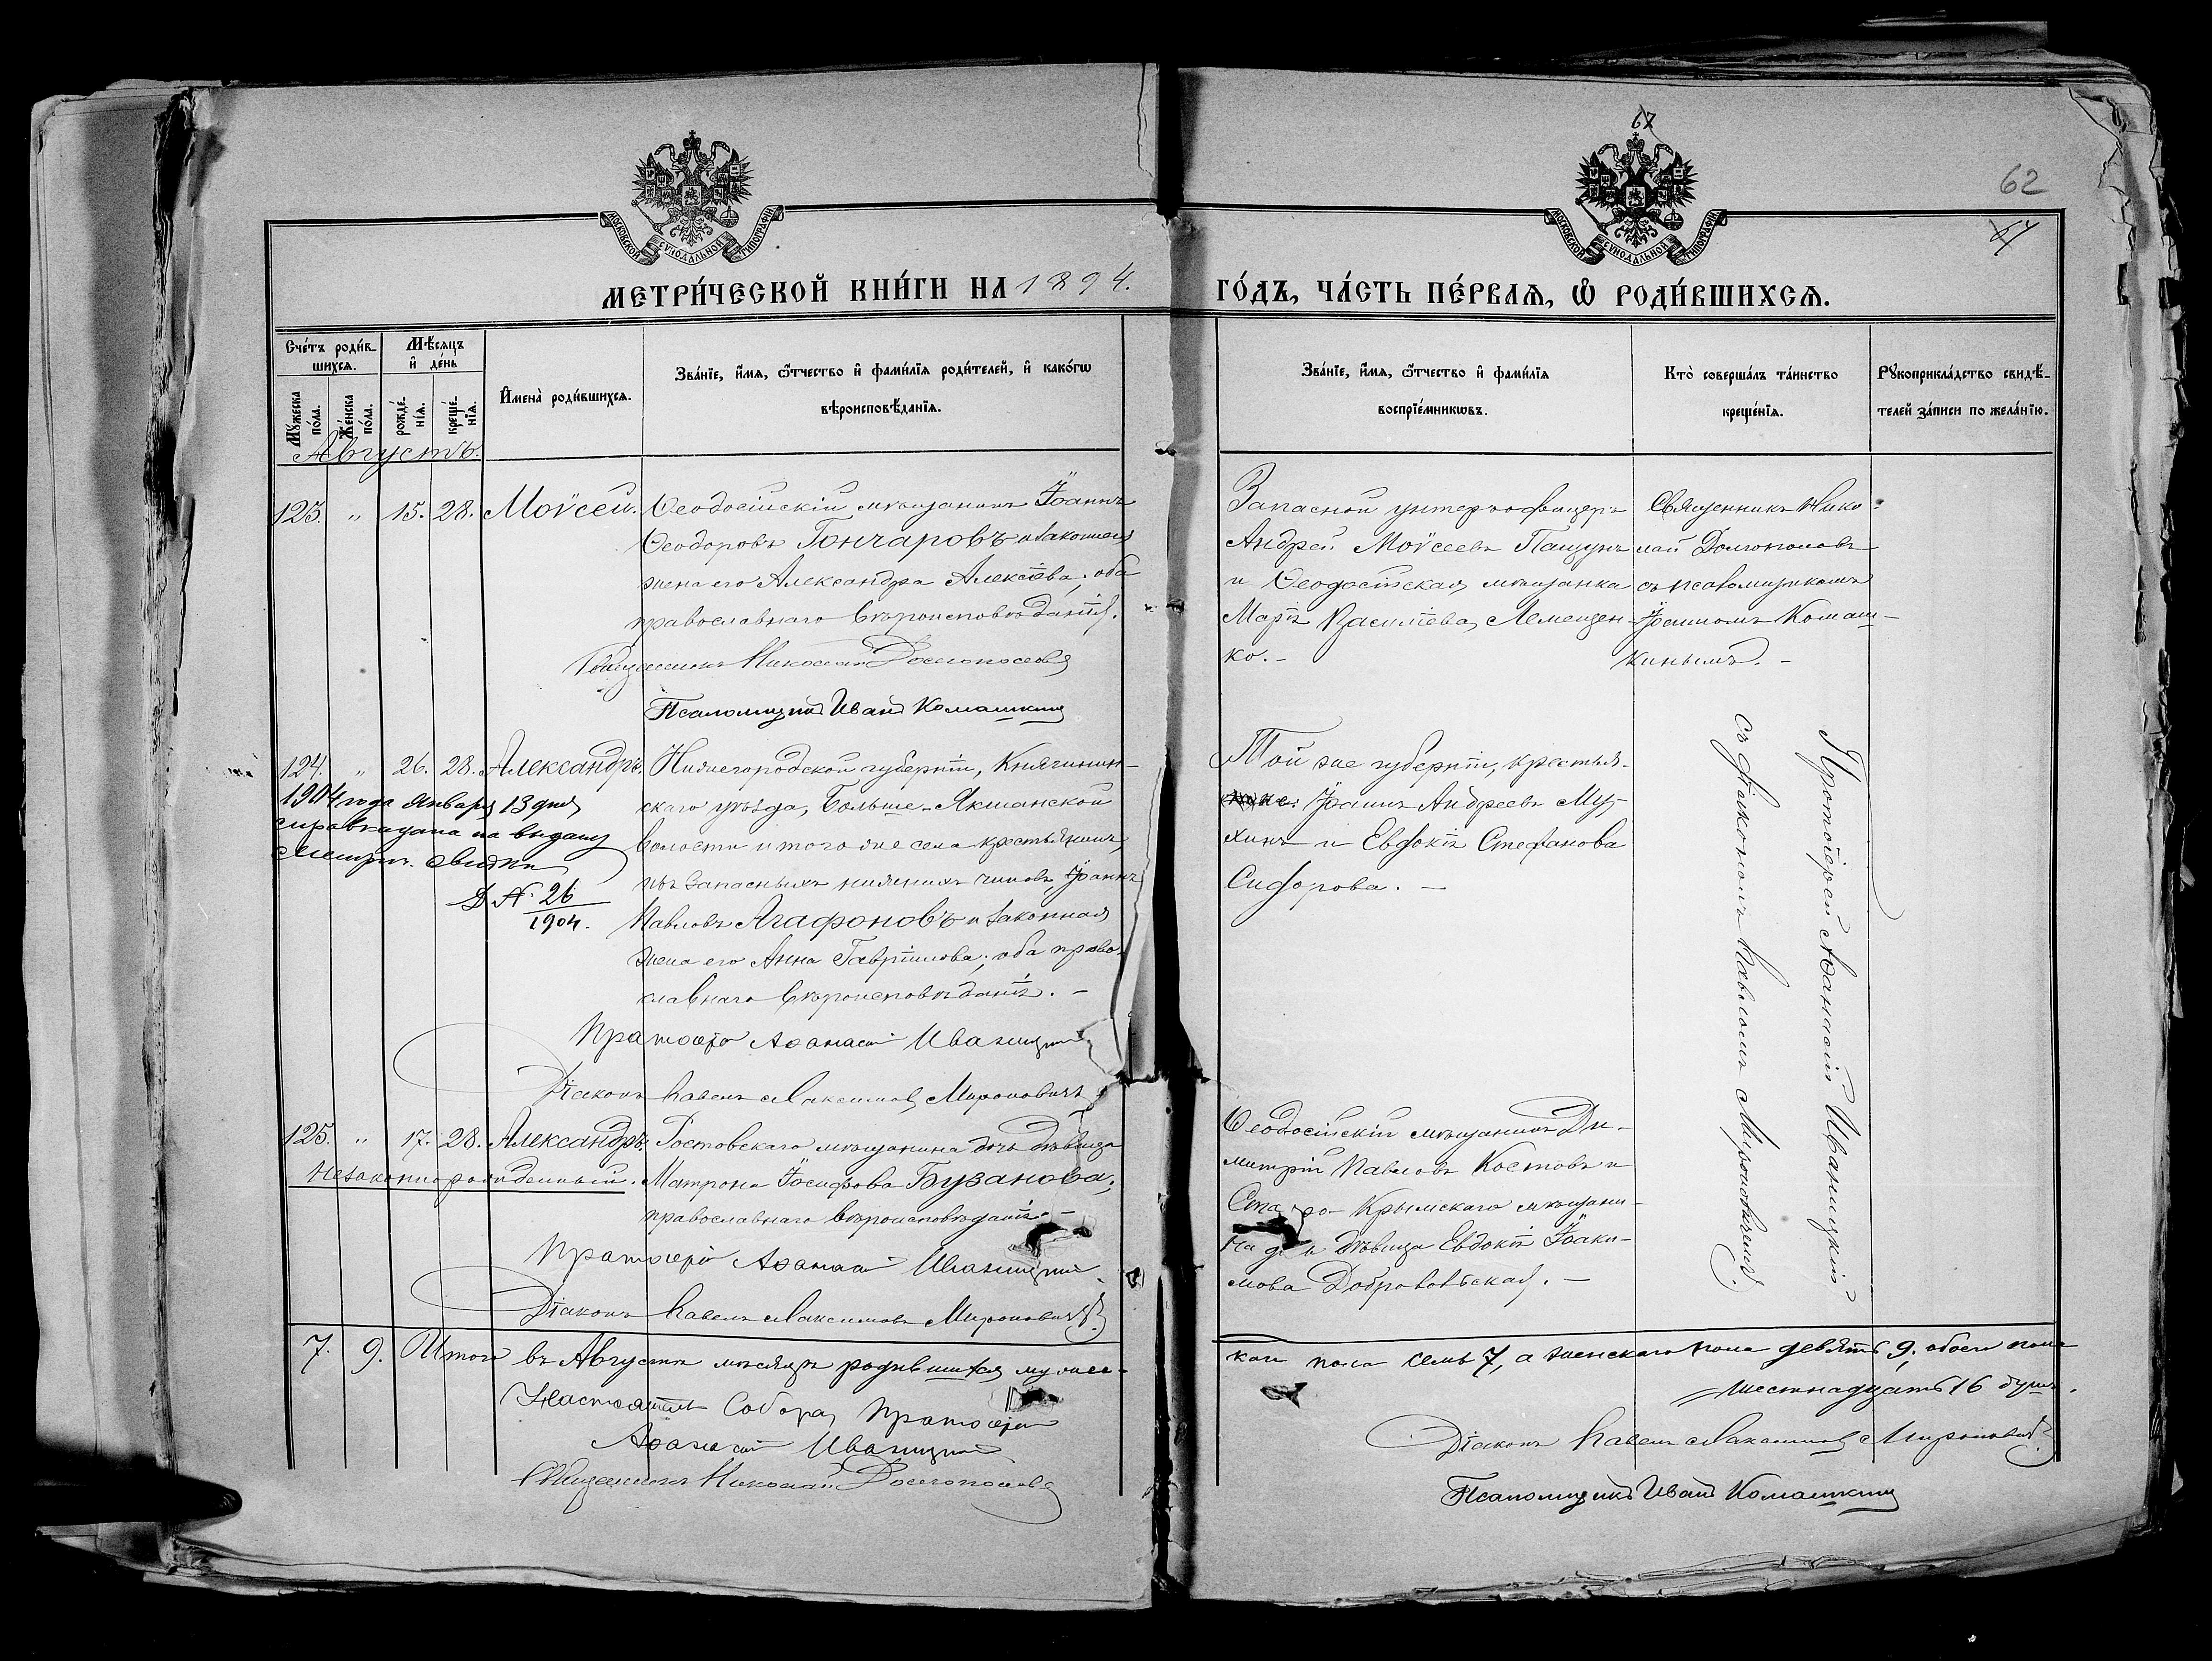 67
62
МОСКОВСКОЙ СУНОДАЛЬНОЙ ТИПОГРАФІИ
МОСКОВСКОЙ СУНОДАЛЬНОЙ ТИПОГРАФІИ
МЕТРИ́ЧЕСКОЙ КНИ́ГИ НА 1894.
ГО́ДЪ, ЧА́СТЬ ПЕ́РВАѦ, Ѡ҆ РОДИ́ВШИХСѦ.
Сче́тъ роди́в-
шихсѧ.
Мꙋ́жеска по́ла.
Же́нска по́ла.
Мѣ́сѧцъ
и҆ де́нь
рожде́-
нїѧ.
креще́-
нїѧ.
И҆мена̀ роди́вшихсѧ.
Зва́нїе, и҆́мѧ, ѻ҆́тчество и҆ фами́лїѧ роди́телей, и҆ како́гѡ
вѣроисповѣ́данїѧ.
Зва́нїе, и҆́мѧ, ѻ҆́тчество и҆ фами́лїѧ
воспрїе́мникѡвъ.
Кто̀ соверша́лъ та́инство
креще́нїѧ.
Рꙋкоприкла́дство свидѣ́-
телей за́писи по жела́нїю.
Августъ.
123. " 15. 28. Моѵсей. Ѳеодосійскій мѣщанинъ Іоаннъ
Ѳеодоровъ Гончаровъ и законная
жена его Александра Алексіева; оба
православнаго вѣроисповѣданія.
Священникъ Николай Долгополовъ
Псаломщикъ Иванъ Комашкинъ
Запасной унтеръ-офицеръ
Андрей Моѵсеевъ Пащунъ
и Ѳеодосійская мѣщанка
Марія Василіева Лемещен-
ко. –
Священникъ Нико-
лай Долгополовъ
съ псаломщикомъ
Іоанномъ Комаш-
кинымъ. –
124. " 26. 28. Александръ. Нижегородской губерніи, Княгинин-
скаго уѣзда, Больше-Якшанской
волости и того же села крестьянинъ
изъ запасныхъ нижнихъ чиновъ Іоаннъ
Павловъ Агафоновъ и законная
жена его Анна Гавріилова; оба право-
славнаго вѣроисповѣданія. –
1904 года Января 13 дня
справка дана на выдачу
метрич. свидѣт.
Д. № 26
1904.
Протоіерей Аѳанасій Иваницкій
Діаконъ Павелъ Максимовъ Мироновичъ
Той же губерніи, крестья-
не: Іоаннъ Андреевъ Му-
хинъ и Евдокія Стефанова
Сидорова. –
Протоіерей Аѳанасій Иваницкій
съ діакономъ Павломъ Мироновичемъ
125. " 17. 28. Александръ. Ростовскаго мѣщанина дочь дѣвица
Незаконнорожденный. Матрона Іосифова Бузанова;
православнаго вѣроисповѣданія. –
Протоіерей Аѳанасій Иваницкій
Діаконъ Павелъ Максимовъ Мироновичъ
Ѳеодосійскій мѣщанинъ Ди-
митрій Павловъ Костовъ и
Старо-Крымскаго мѣщани-
на дочь дѣвица Евдокія Іоаки-
мова Добровольская. –
7. 9. Итого въ Августѣ мѣсяцѣ родившихся мужес-
каго пола семь 7, а женскаго пола девять 9; обоего пола
шестнадцать 16 душъ.
Настоятель Собора, Протоіерей
Аѳанасій Иваницкій
Священникъ Николай Долгополовъ
Діаконъ Павелъ Максимовъ Мироновичъ
Псаломщикъ Иванъ Комашкинъ